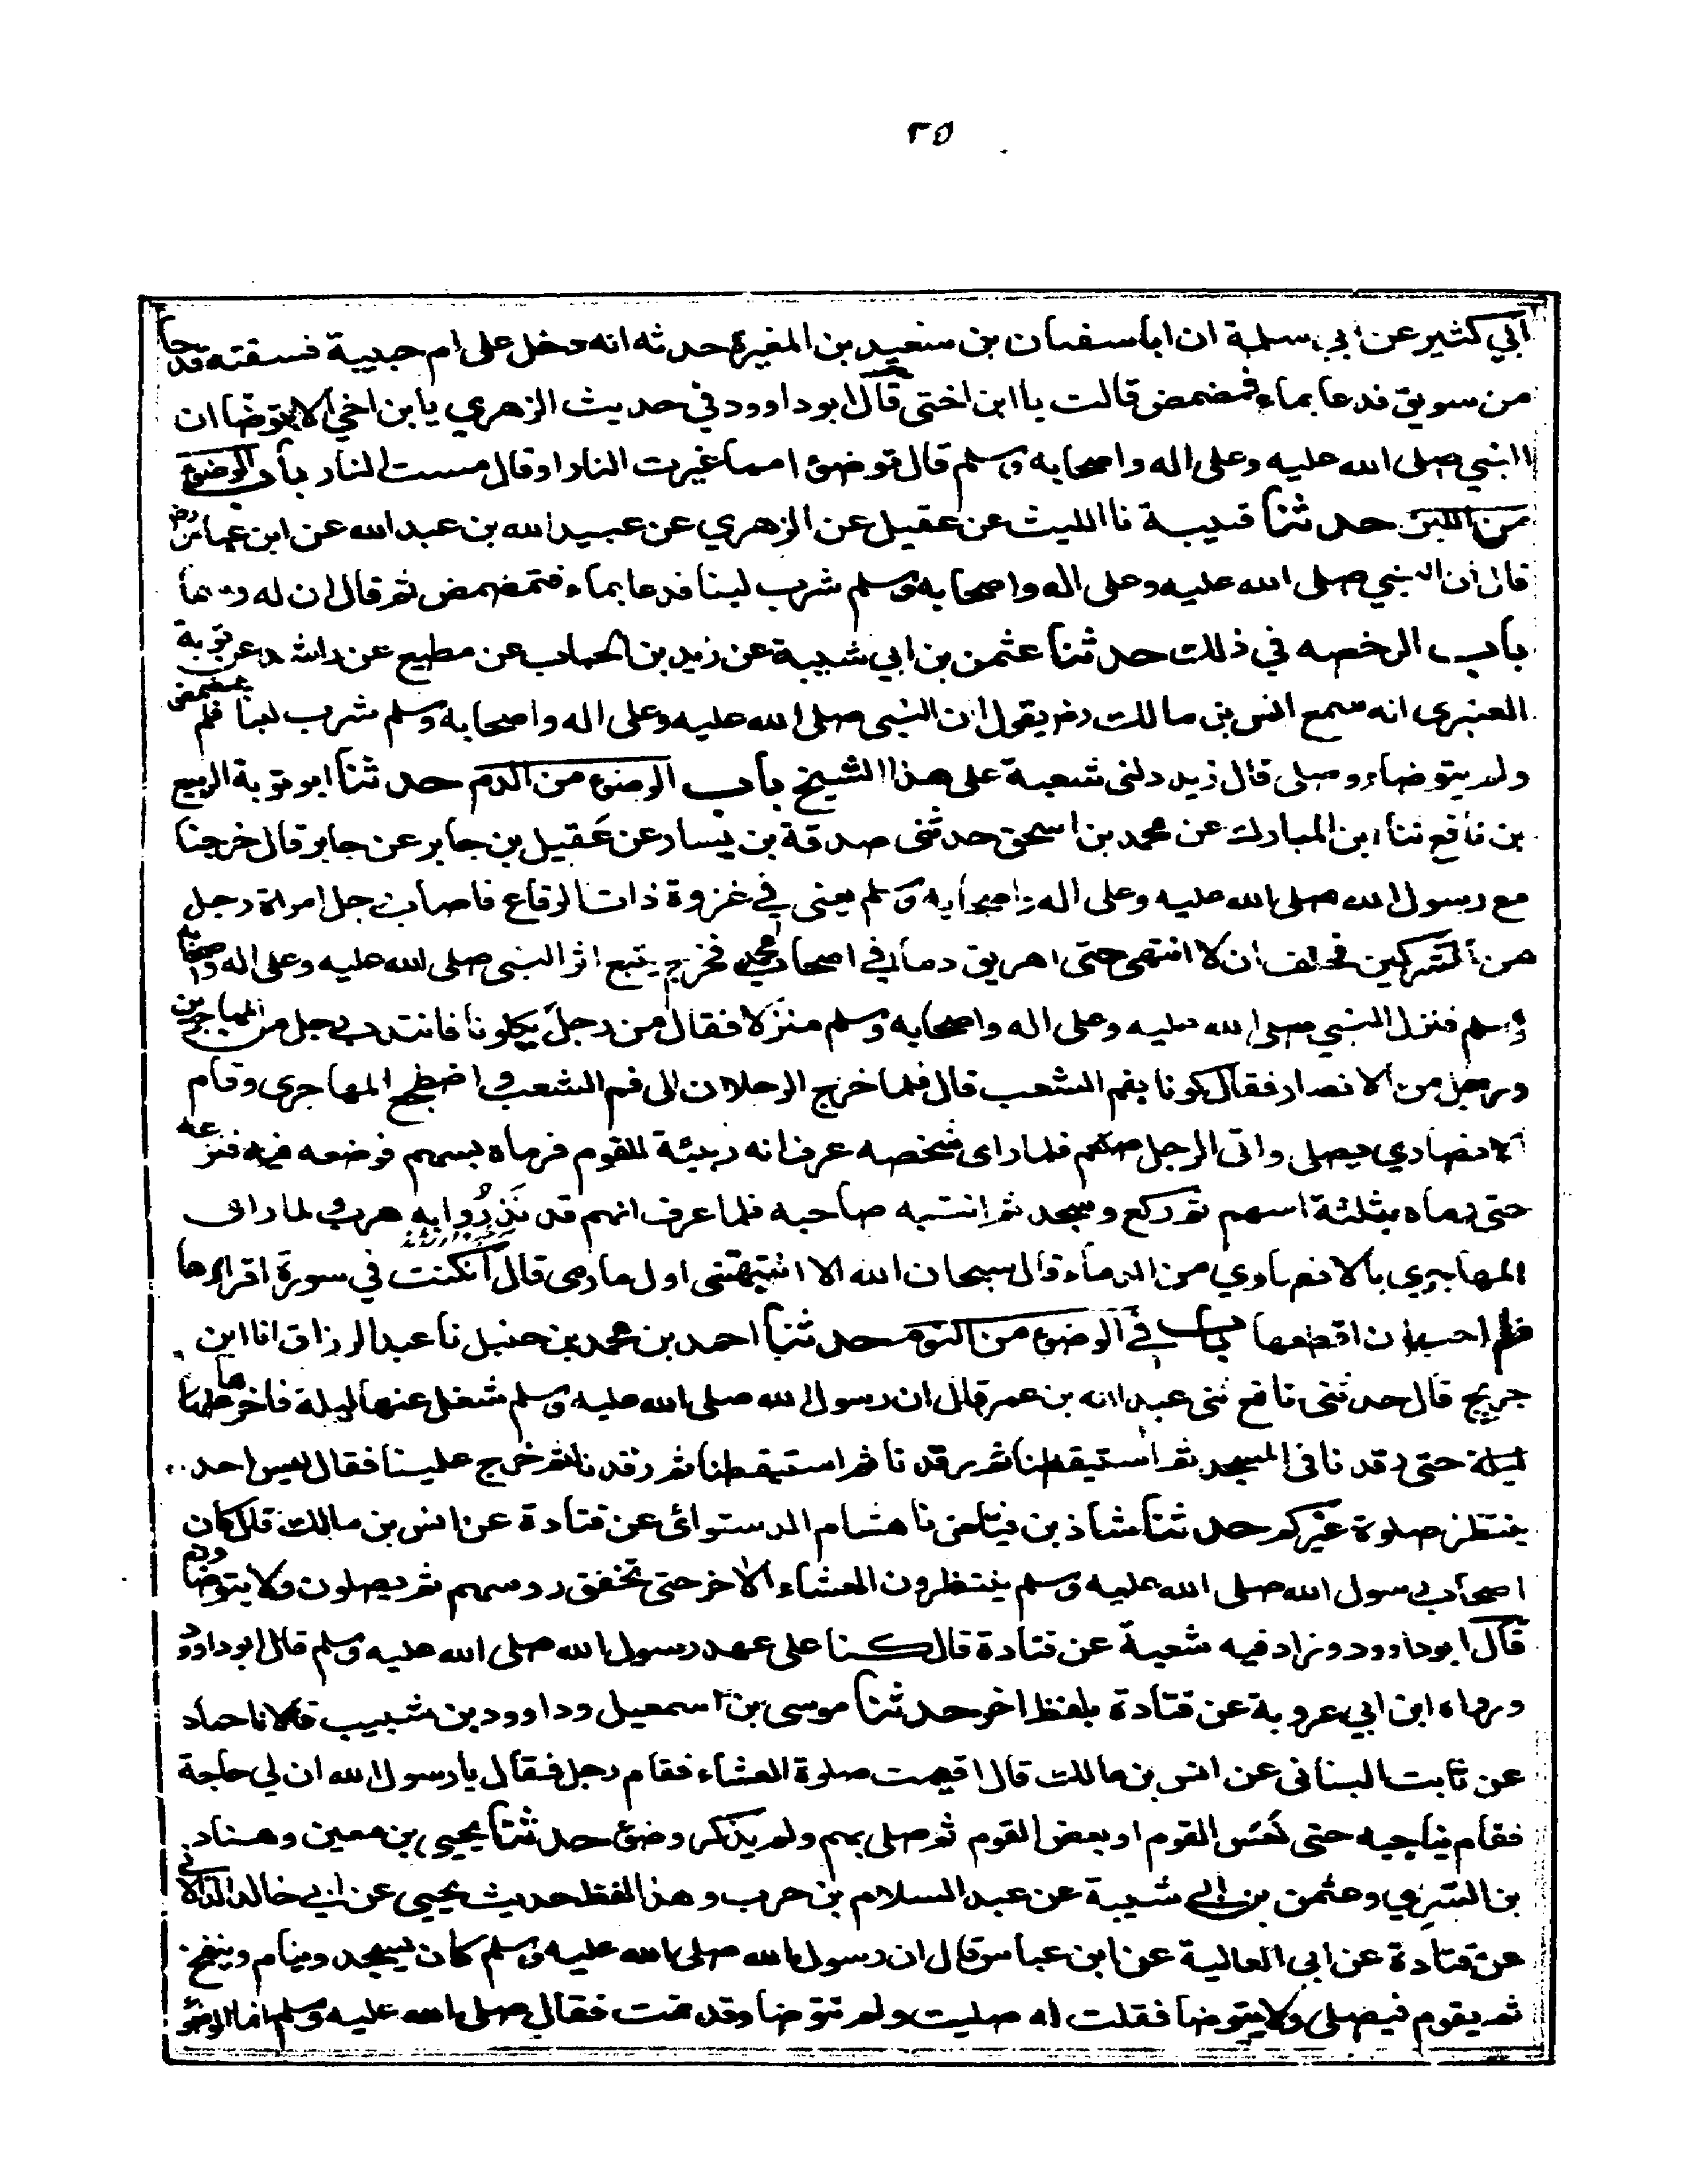 ٢٥
ابي كثير عن ابي سلمة ان ابا سفيان بن سعيد بن المغيرة حدثه انه دخل على ام حبيبة فسقته قدحا
من سويق فدعا بماء فمضمض قالت يا ابن اختي قال ابو داوود في حديث الزهري يا بن اخي الا توضا ان
النبي صلى الله عليه وعلى اله واصحابه وسلم قال توضؤا مما غيرت النار او قال مست النار باب الوضوء
من اللبن حدثنا قتيبة نا الليث عن عقيل عن الزهري عن عبيد الله بن عبد الله عن ابن عباس رض
قال ان النبي صلى الله عليه وعلى اله واصحابه وسلم شرب لبنا فدعا بماء فتمضمض ثم قال ان له دسما
باب الرخصه في ذلك حدثنا عثمن بن ابي شيبة عن زيد بن الحباب عن مطيع عن راشد عن توبة
العنبري انه سمع انس بن مالك رض يقول ان النبي صلى الله عليه وعلى اله واصحابه وسلم شرب لبنا فلم يمضمض
ولم يتوضاء وصلى قال زيد دلني شعبة على هذا الشيخ باب الوضوء من الدم حدثنا ابو توبة الربيع
بن نافع ثنا ابن المبارك عن محمد بن اسحق حدثني صدقة بن يسار عن عقيل بن جابر عن جابر قال خرجنا
مع رسول الله صلى الله عليه وعلى اله واصحابه وسلم يعني في غزوة ذات الرقاع فاصاب رجل امراة رجل
من المشركين فحلف ان لا انتهى حتى اهريق دما في اصحاب محمد فخرج يتبع اثر النبي صلى الله عليه وعلى اله واصحابه
وسلم فنزل النبي صلى الله عليه وعلى اله واصحابه وسلم منزلا فقال من رجل يكلونا فانتدب رجل من المهاجرين
ورجل من الانصار فقال كونا بفم الشعب قال فلما خرج الرجلان الى فم الشعب اضطجع المهاجرى وقام
الانصاري يصلى واتى الرجل فلما راى شخصه عرف انه ربيئة للقوم فرماه بسهم فوضعه فيه فنزعه
حتى رماه بثلثة اسهم ثم ركع وسجد ثم انتبه صاحبه فلما عرف انهم قد نذروا به هرب ولما راى
المهاجري بالانصاري من الدماء قال سبحان الله الا انبهتني اول ما رمى قال كنت في سورة اقراوها
فلم احب ان اقطعها باب في الوضوء من النوم حدثنا احمد بن محمد بن حنبل نا عبد الرزاق انا ابن
جريج قال حدثني نافع ثنى عبد الله بن عمر قال ان رسول الله صلى الله عليه وسلم شغل عنها ليلة فاخرها
ليلة حتى رقدنا في المسجد ثم استيقظنا ثم رقدنا ثم استيقظنا ثم رقدنا ثم خرج علينا فقال ليس احد
ينتظر صلوة غيركم حدثنا شاذ بن فياض نا هشام الدستوائى عن قتادة عن انس بن مالك قال كان
اصحاب رسول الله صلى الله عليه وسلم ينتظرون العشاء الاخر حتى تخفق روسهم ثم يصلون ولا يتوضاون
قال ابو داوود وزاد فيه شعبة عن قتادة قال كنا على عهد رسول الله صلى الله عليه وسلم قال ابو داوود
ورواه ابن ابي عروبة عن قتادة بلفظ اخر حدثنا موسى بن اسمعيل وداوود بن شبيب قالا نا حماد
عن ثابت البناني عن انس بن مالك قال اقيمت صلوة العشاء فقام رجل فقال يا رسول الله ان لي حاجة
فقام يناجيه حتى نعس القوم او بعض القوم ثم صلى بهم ولم يذكر وضوء حدثنا يحيى بن معين وهناد
بن السري وعثمن بن ابي شيبة عن عبد السلام بن حرب وهذا لفظ حديث يحيى عن ابي خالد الدالاني
عن قتادة عن ابي العالية عن ابن عباس قال ان رسول الله صلى الله عليه وسلم كان يسجد وينام وينفخ
ثم يقوم فيصلى ولا يتوضا فقلت له صليت ولم تتوضا وقد نمت فقال صلى الله عليه وسلم انما الوضوء